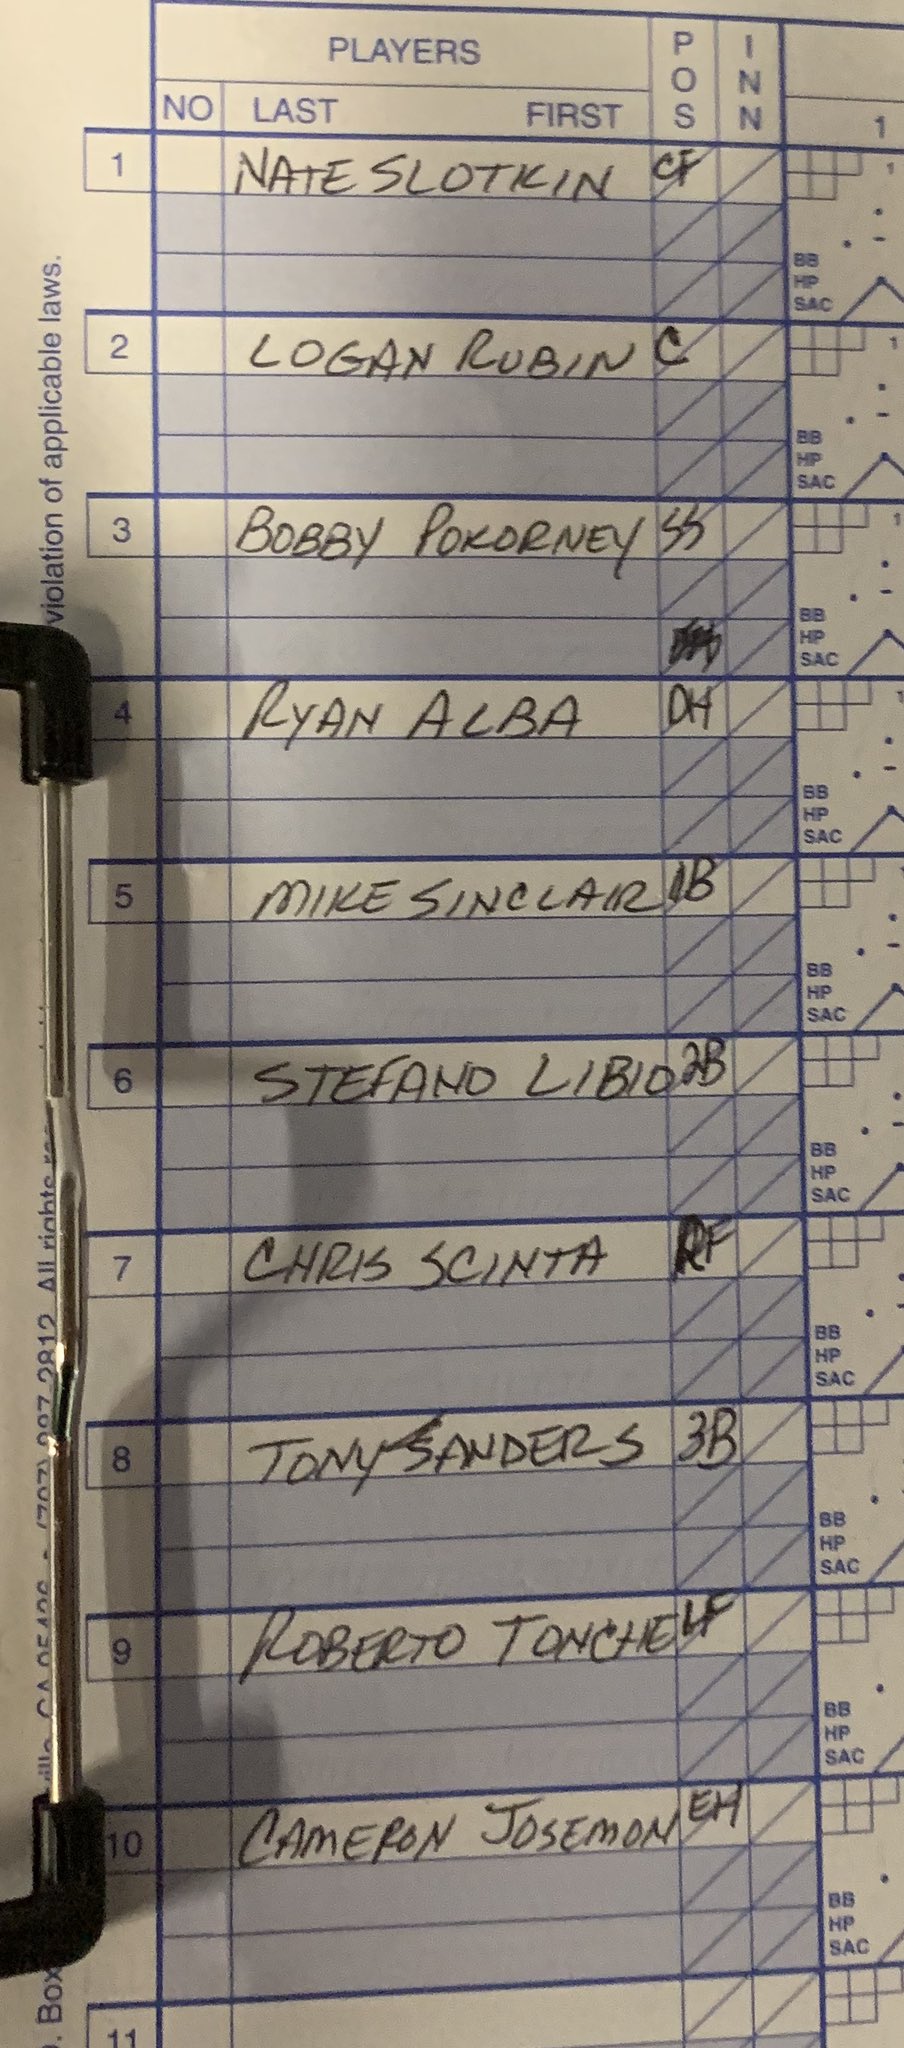 PLAYERS POS INN
NO LAST FIRST 1
1 NATE SLOTKIN CF 1
BB
HP
SAC
2 LOGAN RUBIN C 1
BB
HP
SAC
3 BOBBY POKORNEY SS 1
BB
HP
SAC
4 RYAN ALBA DH 1
BB
HP
SAC
5 MIKE SINCLAIR 1B
BB
HP
SAC
6 STEFANO LIBIO 2B
BB
HP
SAC
7 CHRIS SCINTA RF
BB
HP
SAC
8 TONY SANDERS 3B
BB
HP
SAC
9 ROBERTO TONCHE LF
BB
HP
SAC
10 CAMERON JOSEMON EH
BB
HP
SAC
11
. Box CA 95406 - (707) 887-2812 All rights violation of applicable laws.